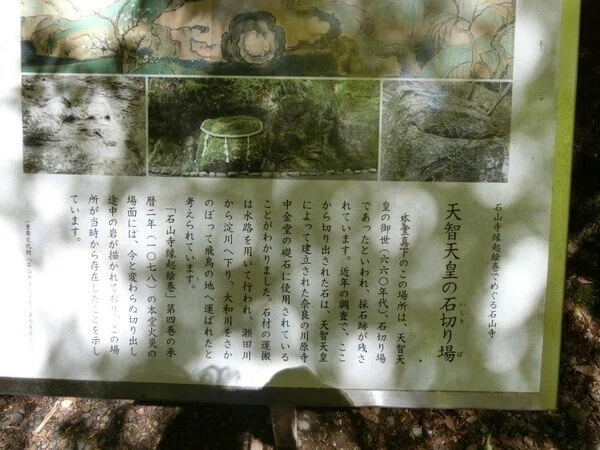 石山寺縁起絵巻でめぐる石山寺
天智天皇の石切り場
いしき
ば
本堂真下のこの場所は、天智天
皇の御世(六六〇年代)、石切り場
であったといわれ、採石跡が残さ
れています。近年の調査で、ここ
から切り出された石は、天智天皇
によって建立された奈良の川原寺
中金堂の礎石に使用されている
ことがわかりました。石材の運搬
は水路を用いて行われ、瀬田川
から淀川へ下り、大和川をさか
のぼって飛鳥の地へ運ばれたと
考えられています。
「石山寺縁起絵巻」第四巻の承
暦二年(一〇七八)の本堂火災の
場面には、今と変わらぬ切り出し
途中の岩が描かれており、この場
所が当時から存在したことを示し
ています。